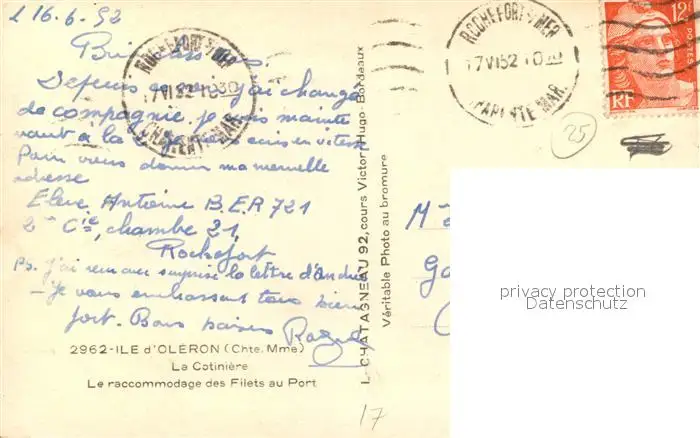 L 16.6.52
Depuis j'ai changé
de compagnie, je suis mainte
nant à la 2e je vous écris en vitesse
Pour vous donner ma nouvelle
adresse
Eleve Antoine B.E.R 721
2me Cie, chambre 21,
Rochefort
Ps. J'ai reçu avec surprise la lettre d'André
- Je vous embrassant tous bien
fort. Bons baisers
2962-ILE d'OLÉRON (Chte. Mme)
La Cotinière
Le raccommodage des Filets au Port
ROCHEFORT S/MER
17 VI 52 10 30
CHARENTE MAR.
L. CHATAGNEAU 92, cours Victor-Hugo-Bordeaux
Véritable Photo au bromure
ROCHEFORT S/MER
17 VI 52 10 30
CHARENTE MAR.
12F
POSTES
RF
25
M
Ga
privacy protection
Datenschutz
17